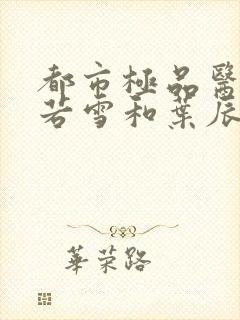 都市極品醫
若雪和葉辰
華荣路